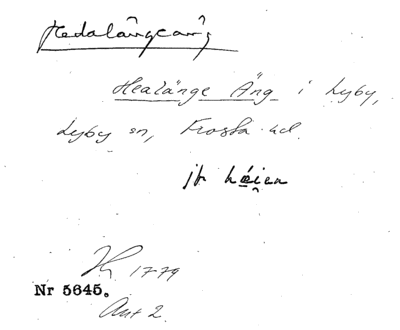 Hedalängeäng
Healänge Äng i Lyby,
Lyby sn, Frosta hd
jfr
1779
Nr 5645.
Akt 2.